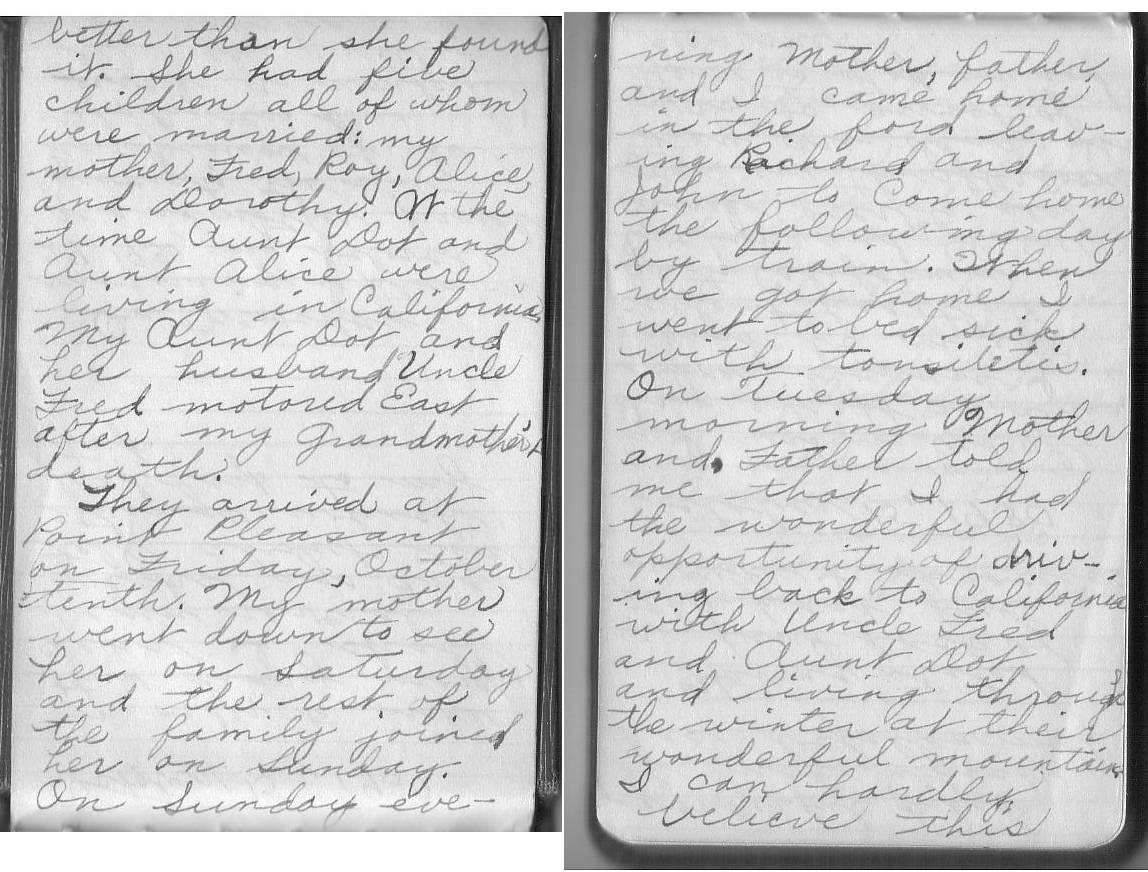 better than she found
it. She had five
children all of whom
were married: my
mother, Fred, Roy, Alice,
and Dorothy. At the
time Aunt Dot and
Aunt Alice were
living in California.
My Aunt Dot and
her husband Uncle
Fred motored East
after my Grandmother's
death.
They arrived at
Point Pleasant
on Friday, October
tenth. My mother
went down to see
her on Saturday
and the rest of
the family joined
her on Sunday.
On Sunday eve-
ning Mother, father,
and I came home
in the ford leav-
ing Richard and
John to Come home
the following day
by train. When
we got home I
went to bed sick
with tonsiletis.
On Tuesday
morning Mother
and Father told
me that I had
the wonderful
opportunity of driv-
ing back to California
with Uncle Fred
and Aunt Dot
and living through
the winter at their
wonderful mountain.
I can hardly
believe this